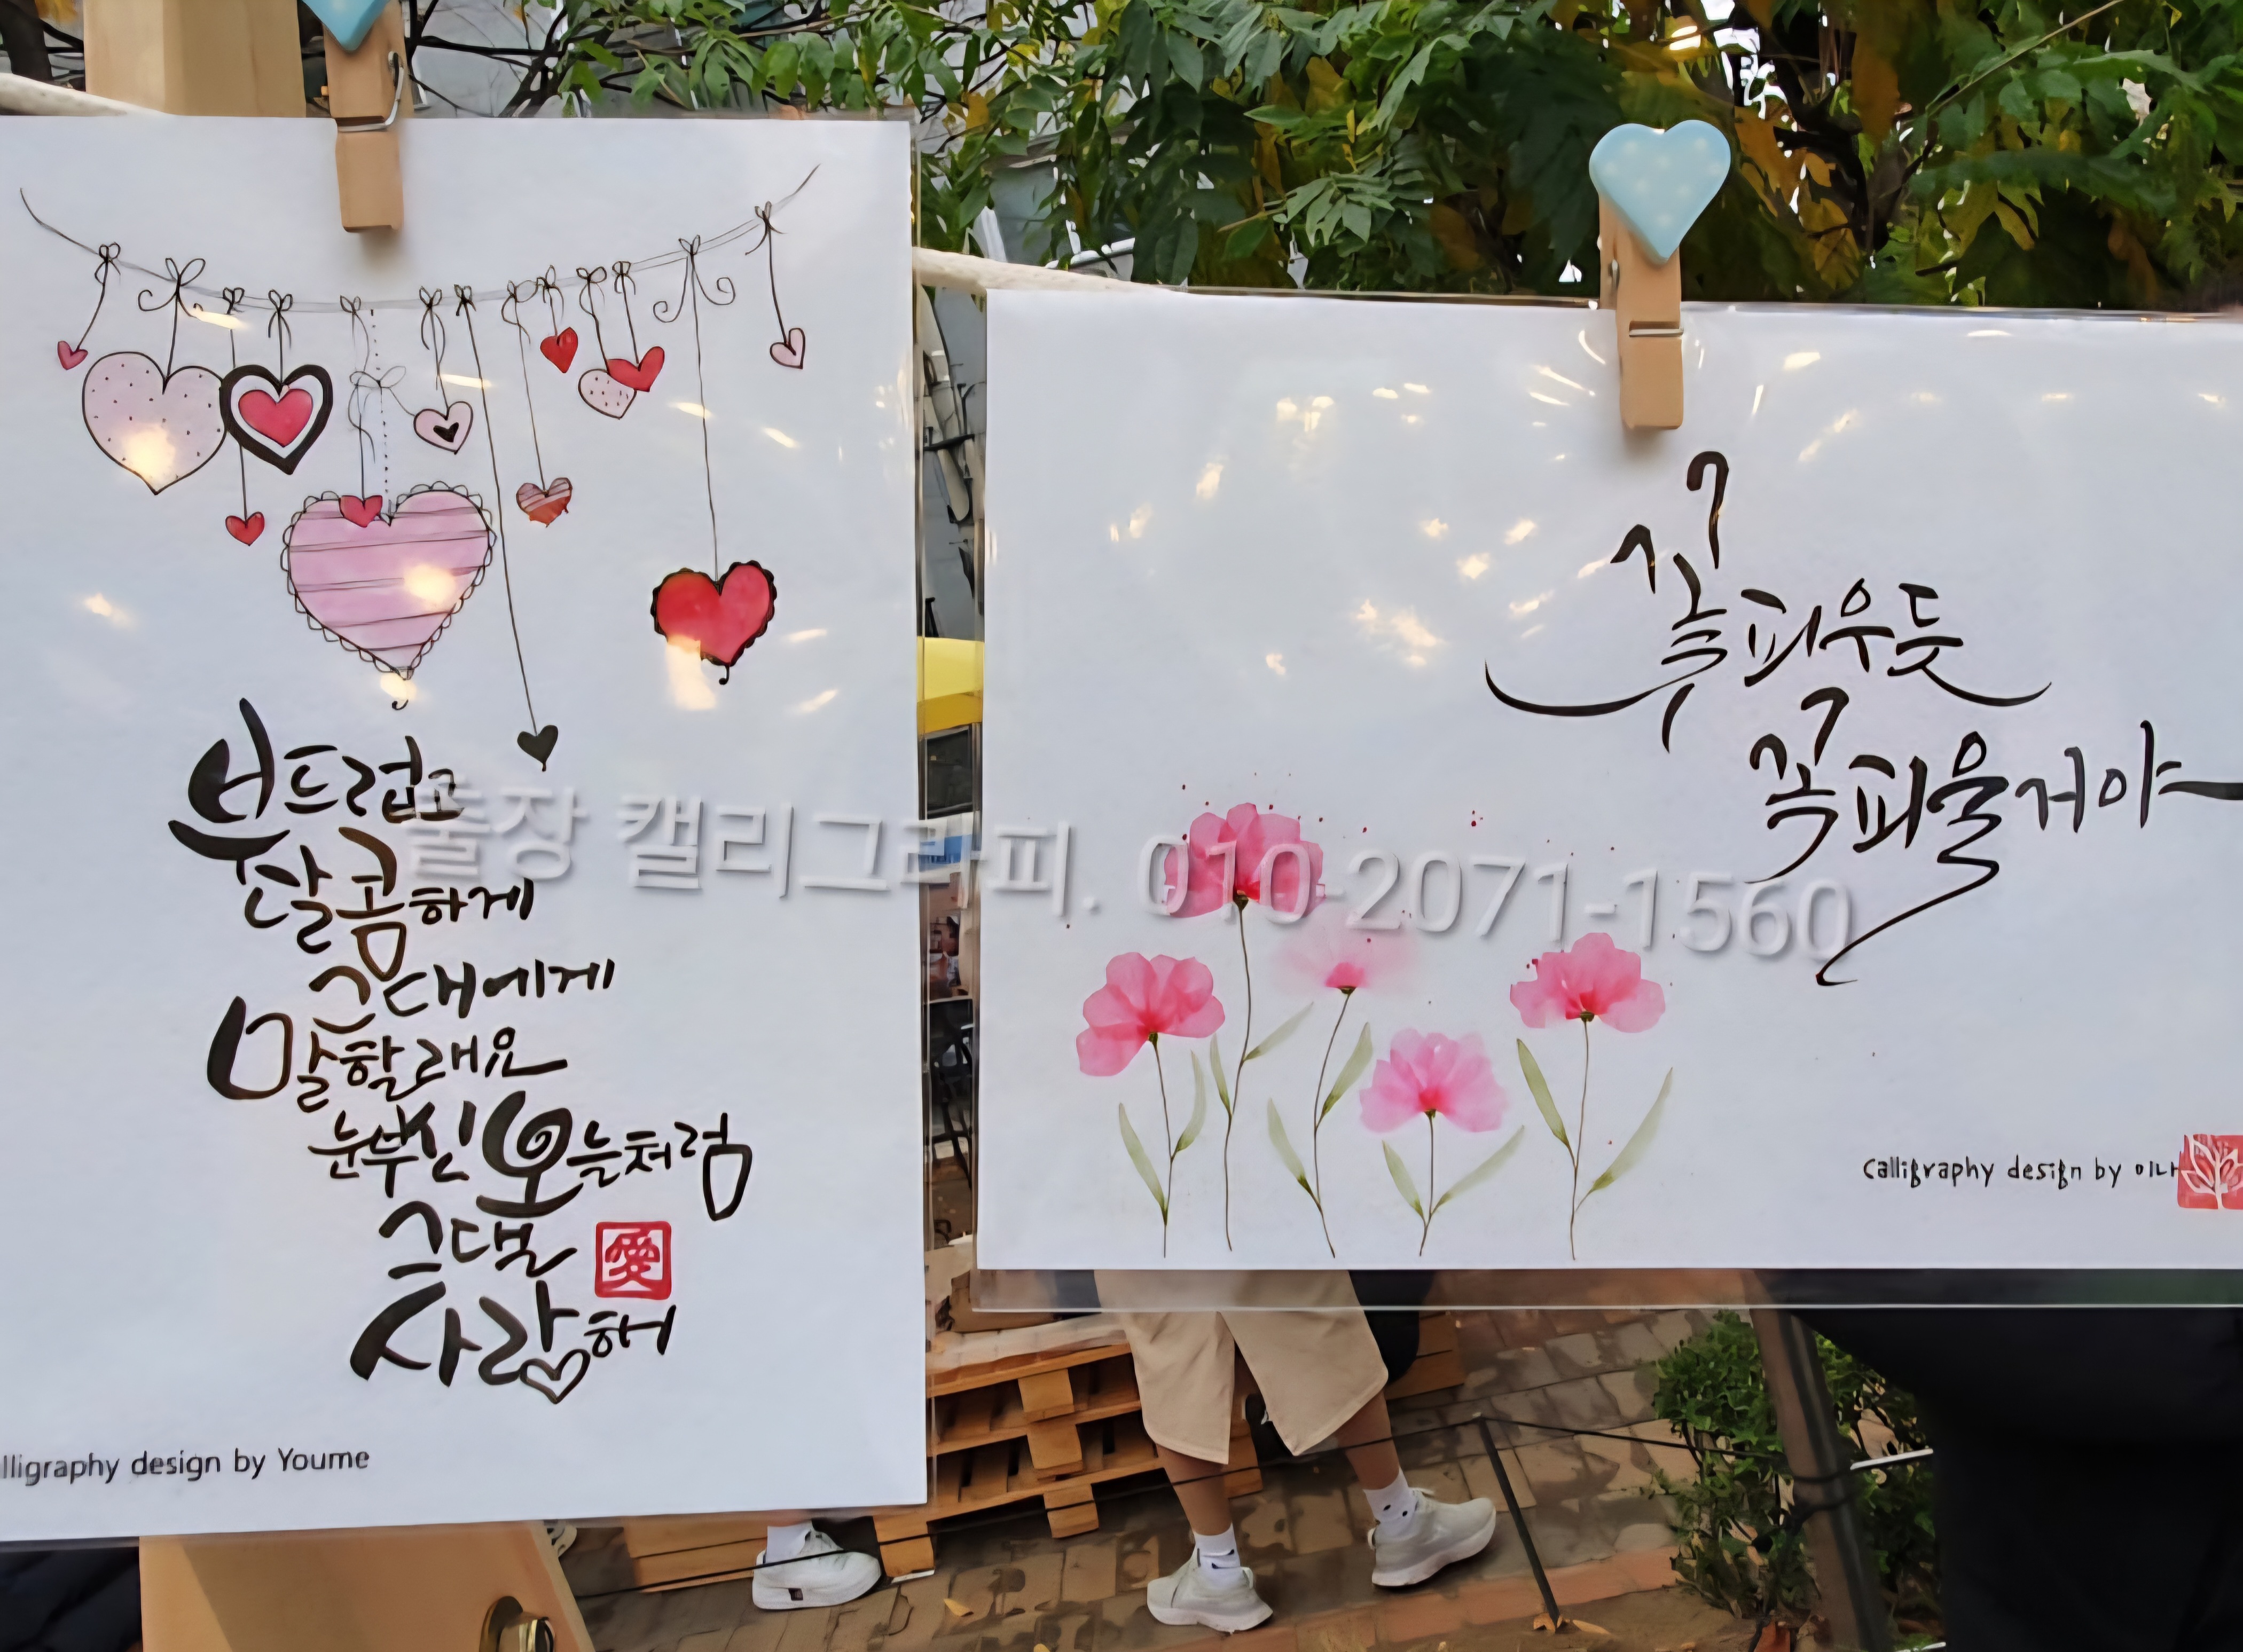 부드럽고
달콤하게
그대에게
말할래요
눈부신 오늘처럼
그댈
愛
사랑해
lligraphy design by Youme
꽃피우듯
꼭피울거야
Calligraphy design by 이나
출장 캘리그라피. 010-2071-1560